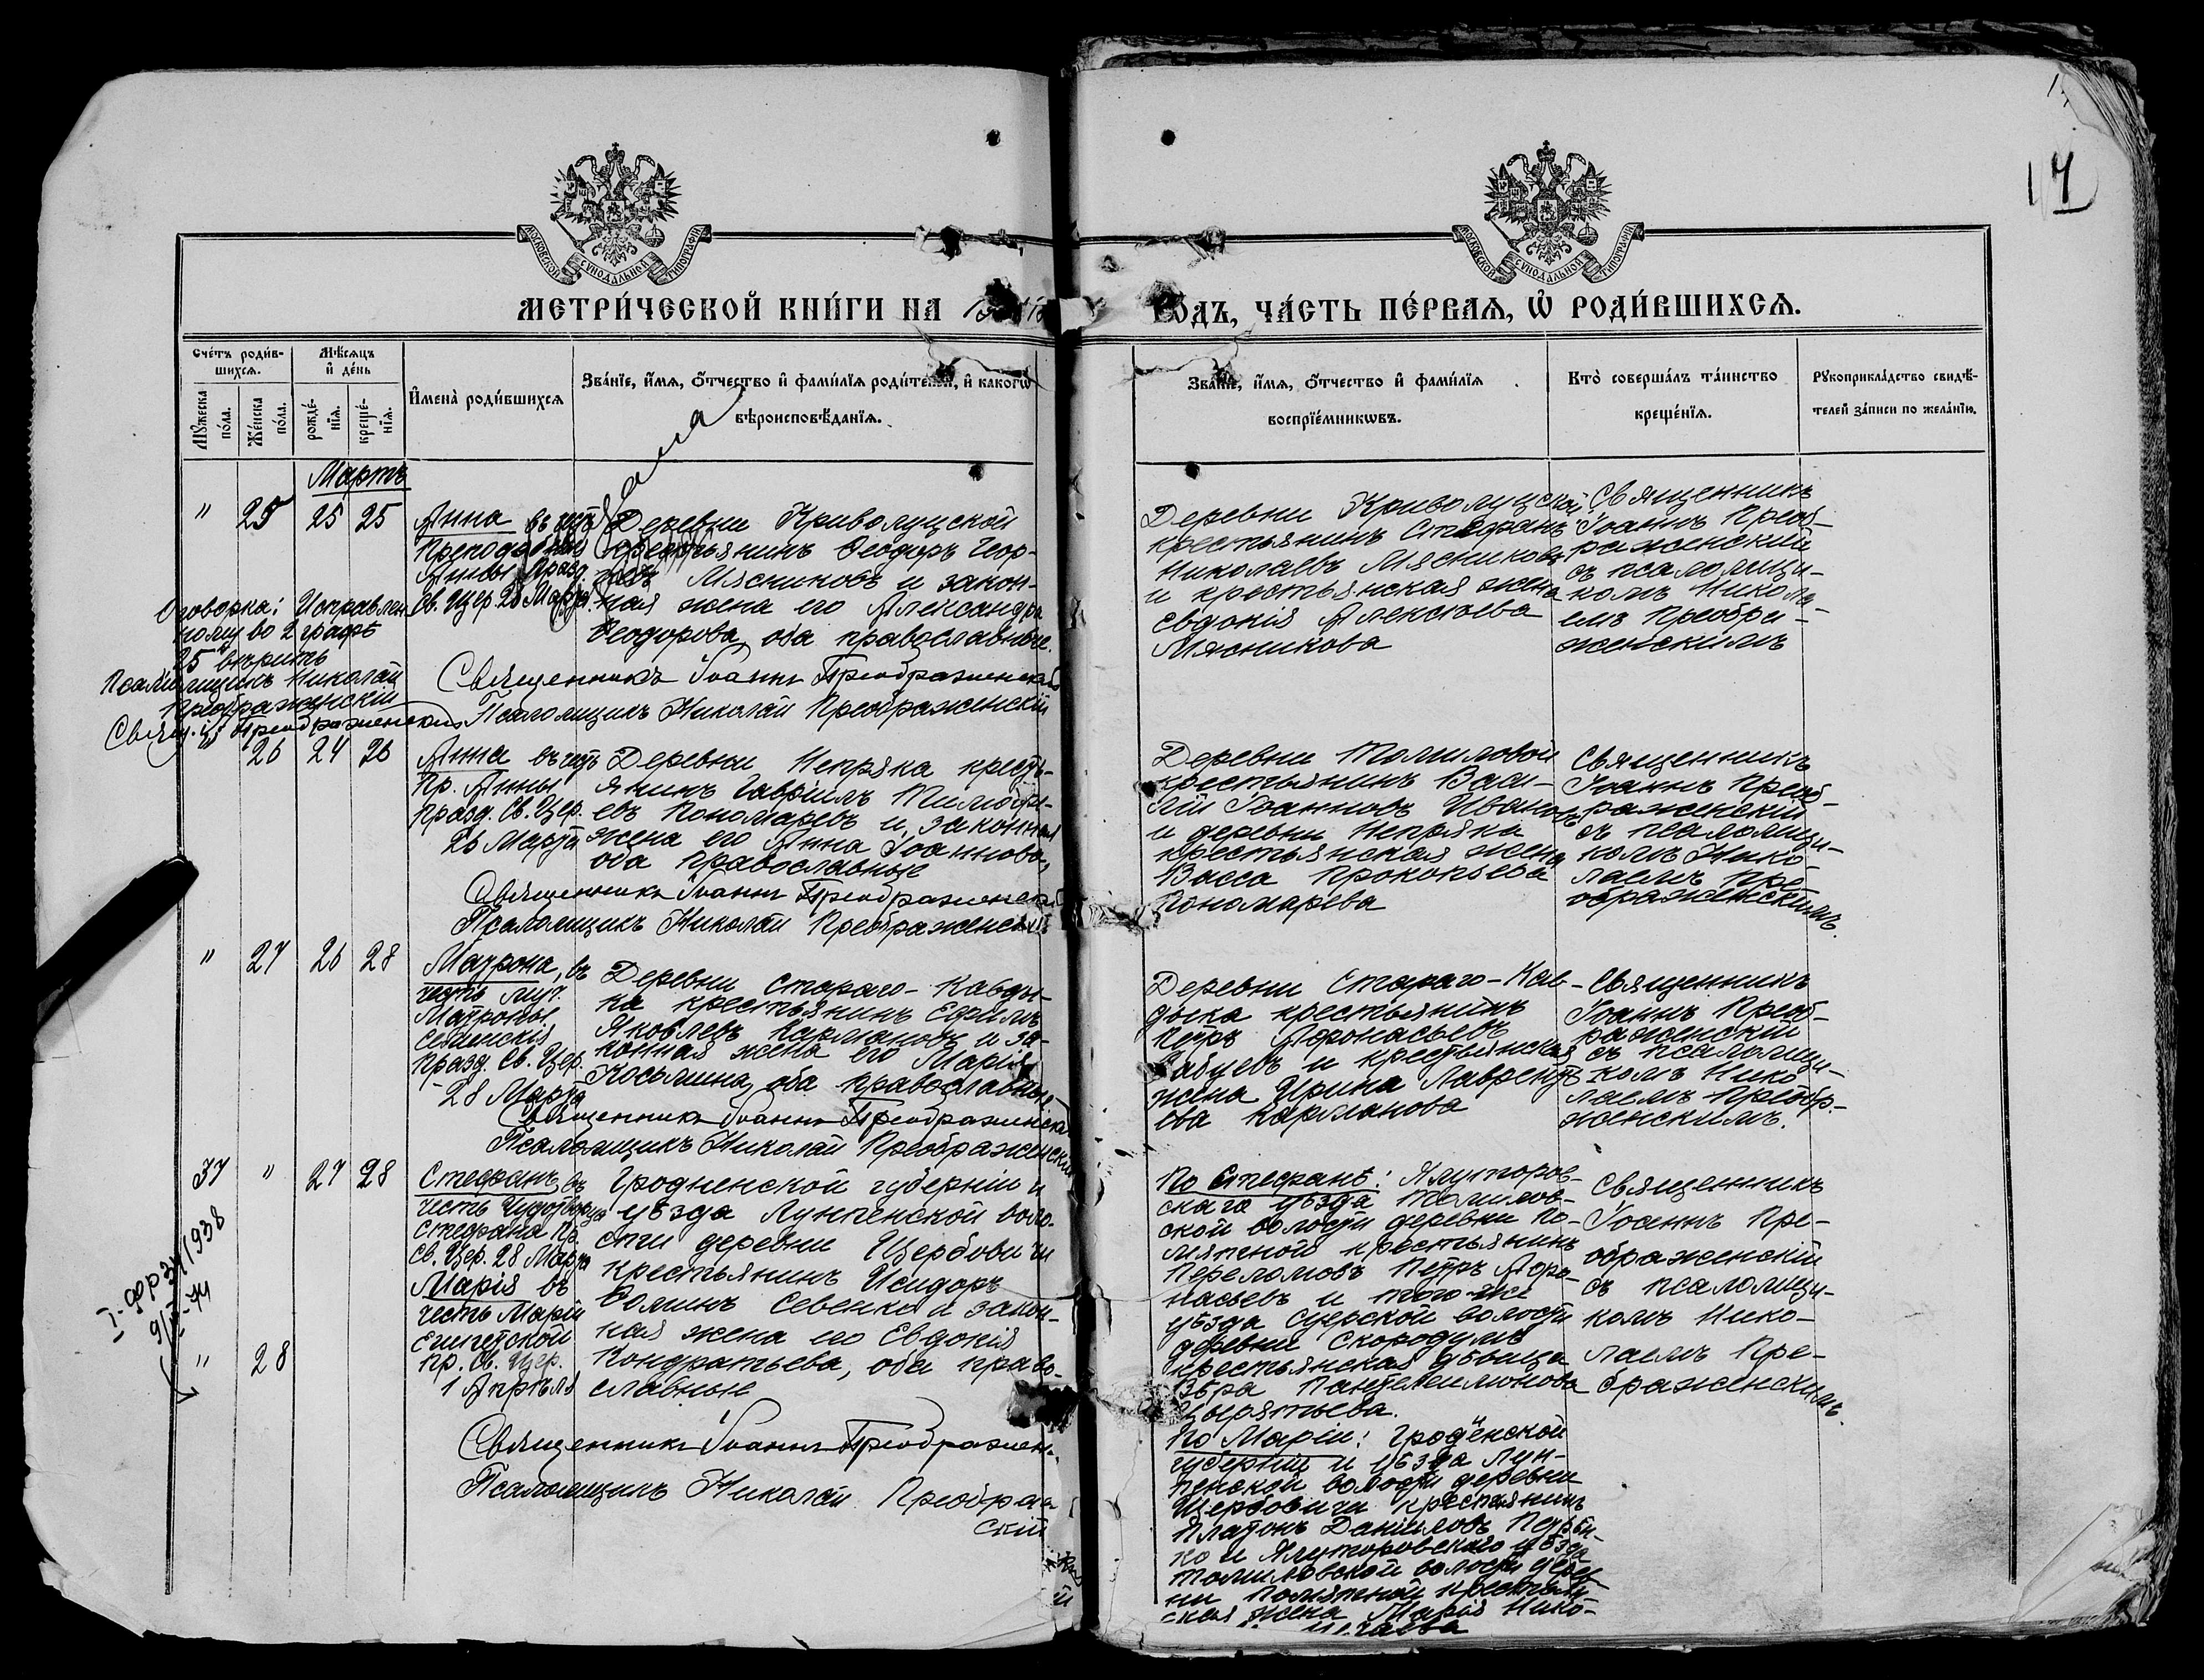 17
МОСКОВСКОЙ СУНОДАЛЬНОЙ ТИПОГРАФІИ
МОСКОВСКОЙ СУНОДАЛЬНОЙ ТИПОГРАФІИ
МЕТРИ́ЧЕСКОЙ КНИ́ГИ НА
ГОДЪ, ЧА́СТЬ ПЕ́РВАѦ, Ѡ҆ РОДИ́ВШИХСѦ.
Сче́тъ роди́в-
шихсѧ.
Мѣ́сѧцъ
и҆ де́нь
Му́жеска
по́ла.
Же́нска
по́ла.
рожде́-
нїѧ.
креще́-
нїѧ.
И҆мена̀ роди́вшихсѧ
Зва́нїе, и҆́мѧ, ѻ҆́тчество и҆ фами́лїѧ роди́телей, и҆ какогѡ
вѣроисповѣ́данїѧ.
Зва́нїе, и҆́мѧ, ѻ҆́тчество и҆ фами́лїѧ
воспрїе́мникѡвъ.
Кто̀ соверша́лъ та́инство
креще́нїѧ.
Рꙋкоприкла́дство свидѣ́-
телей за́писи по жела́нїю.
Мартъ
" 25 25 25
Анна въ честь
Преподобныя
Анны Празд.
Св. Цер. 28 Марта
Деревни Криволуцской
крестьянинъ Ѳеодоръ Геор-
Мясниковъ и закон-
ная жена его Александра
Ѳеодорова, оба православные.
Священникъ Іоаннъ Преображенскій
Псаломщикъ Николай Преображенскій
Оговорка: Исправлен
ному во 2 графѣ
"25" вѣрить
Псаломщикъ Николай
Преображенскій
Свящ. І. Преображенскій
Деревни Криволуцской
крестьянинъ Стефанъ
Николаевъ Мясниковъ
и крестьянская жена
Евдокія Алексѣева
Мясникова
Священникъ
Іоаннъ Преоб-
раженскій
съ псаломщи-
комъ Никола-
емъ Преобра-
женскимъ
" 26 24 26
Анна въ честь
Пр. Анны
празд. Св. Цер.
26 Марта
Деревни Непряка кресть-
янинъ Гавріилъ Тимофе-
евъ Пономаревъ и законная
жена его Анна Іоаннова,
оба православные
Священникъ Іоаннъ Преображенскій
Псаломщикъ Николай Преображенскій
Деревни Томиловой
крестьянинъ Васи-
лій Іоанновъ Ивановъ
и деревни Непряка
крестьянская жена
Васса Прокопьева
Пономарева
Священникъ
Іоаннъ Преоб-
раженскій
съ псаломщи-
комъ Нико-
лаемъ Пре-
ображенскимъ.
" 27 26 28
Матрона, въ
честь муч.
Матроны
Селунскія
празд. Св. Цер.
28 Марта
Деревни Стараго-Кавды-
ка крестьянинъ Ефимъ
Яковлевъ Кармановъ и за-
конная жена его Марія
Косьмина, оба православные
Священникъ Іоаннъ Преображенскій
Псаломщикъ Николай Преображенскій
Деревни Стараго-Кав-
дыка крестьянинъ
Петръ Аѳонасьевъ
и крестьянская
жена Ирина Лавренть-
ева Карманова
Священникъ
Іоаннъ Преоб-
раженскій
съ псаломщи-
комъ Нико-
лаемъ Преобр.-
женскимъ.
37 " 27 28
Стефанъ въ
честь Чудотворца
Стефана Пр.
Св. Цер. 28 Марта
Марія въ
честь Маріи
Египетской
пр. Св. Цер.
1 Апрѣля
" 28
Гродненской губерніи и
уѣзда Лунненской воло-
сти деревни Щербовичи
крестьянинъ Исидоръ
Ѳоминъ Севенко и закон-
ная жена его Евдокія
Кондратьева, оба право-
славные
Священникъ Іоаннъ Преображен.
Псаломщикъ Николай Преображен
скій
По Стефанѣ: Ялуторов-
скаго уѣзда Томилов-
ской волости деревни По-
мятной крестьянинъ
Переломовъ Петръ Аѳо-
насьевъ и того-же
уѣзда Суерской волости
деревни Скородумъ
крестьянская дѣвица
Вѣра Пантелеимонова
По Маріи: Гродненской
губерніи и уѣзда Лун-
ненской волости деревни
Щербовичи крестьянинъ
Платонъ Даніиловъ
и Ялуторовскаго уѣзда
Томиловской волости дерев
ни Помятной крестьян-
ская жена Марія Нико-
Священникъ
Іоаннъ Пре-
ображенскій
съ псаломщи-
комъ Нико-
лаемъ Пре-
ображенскимъ.